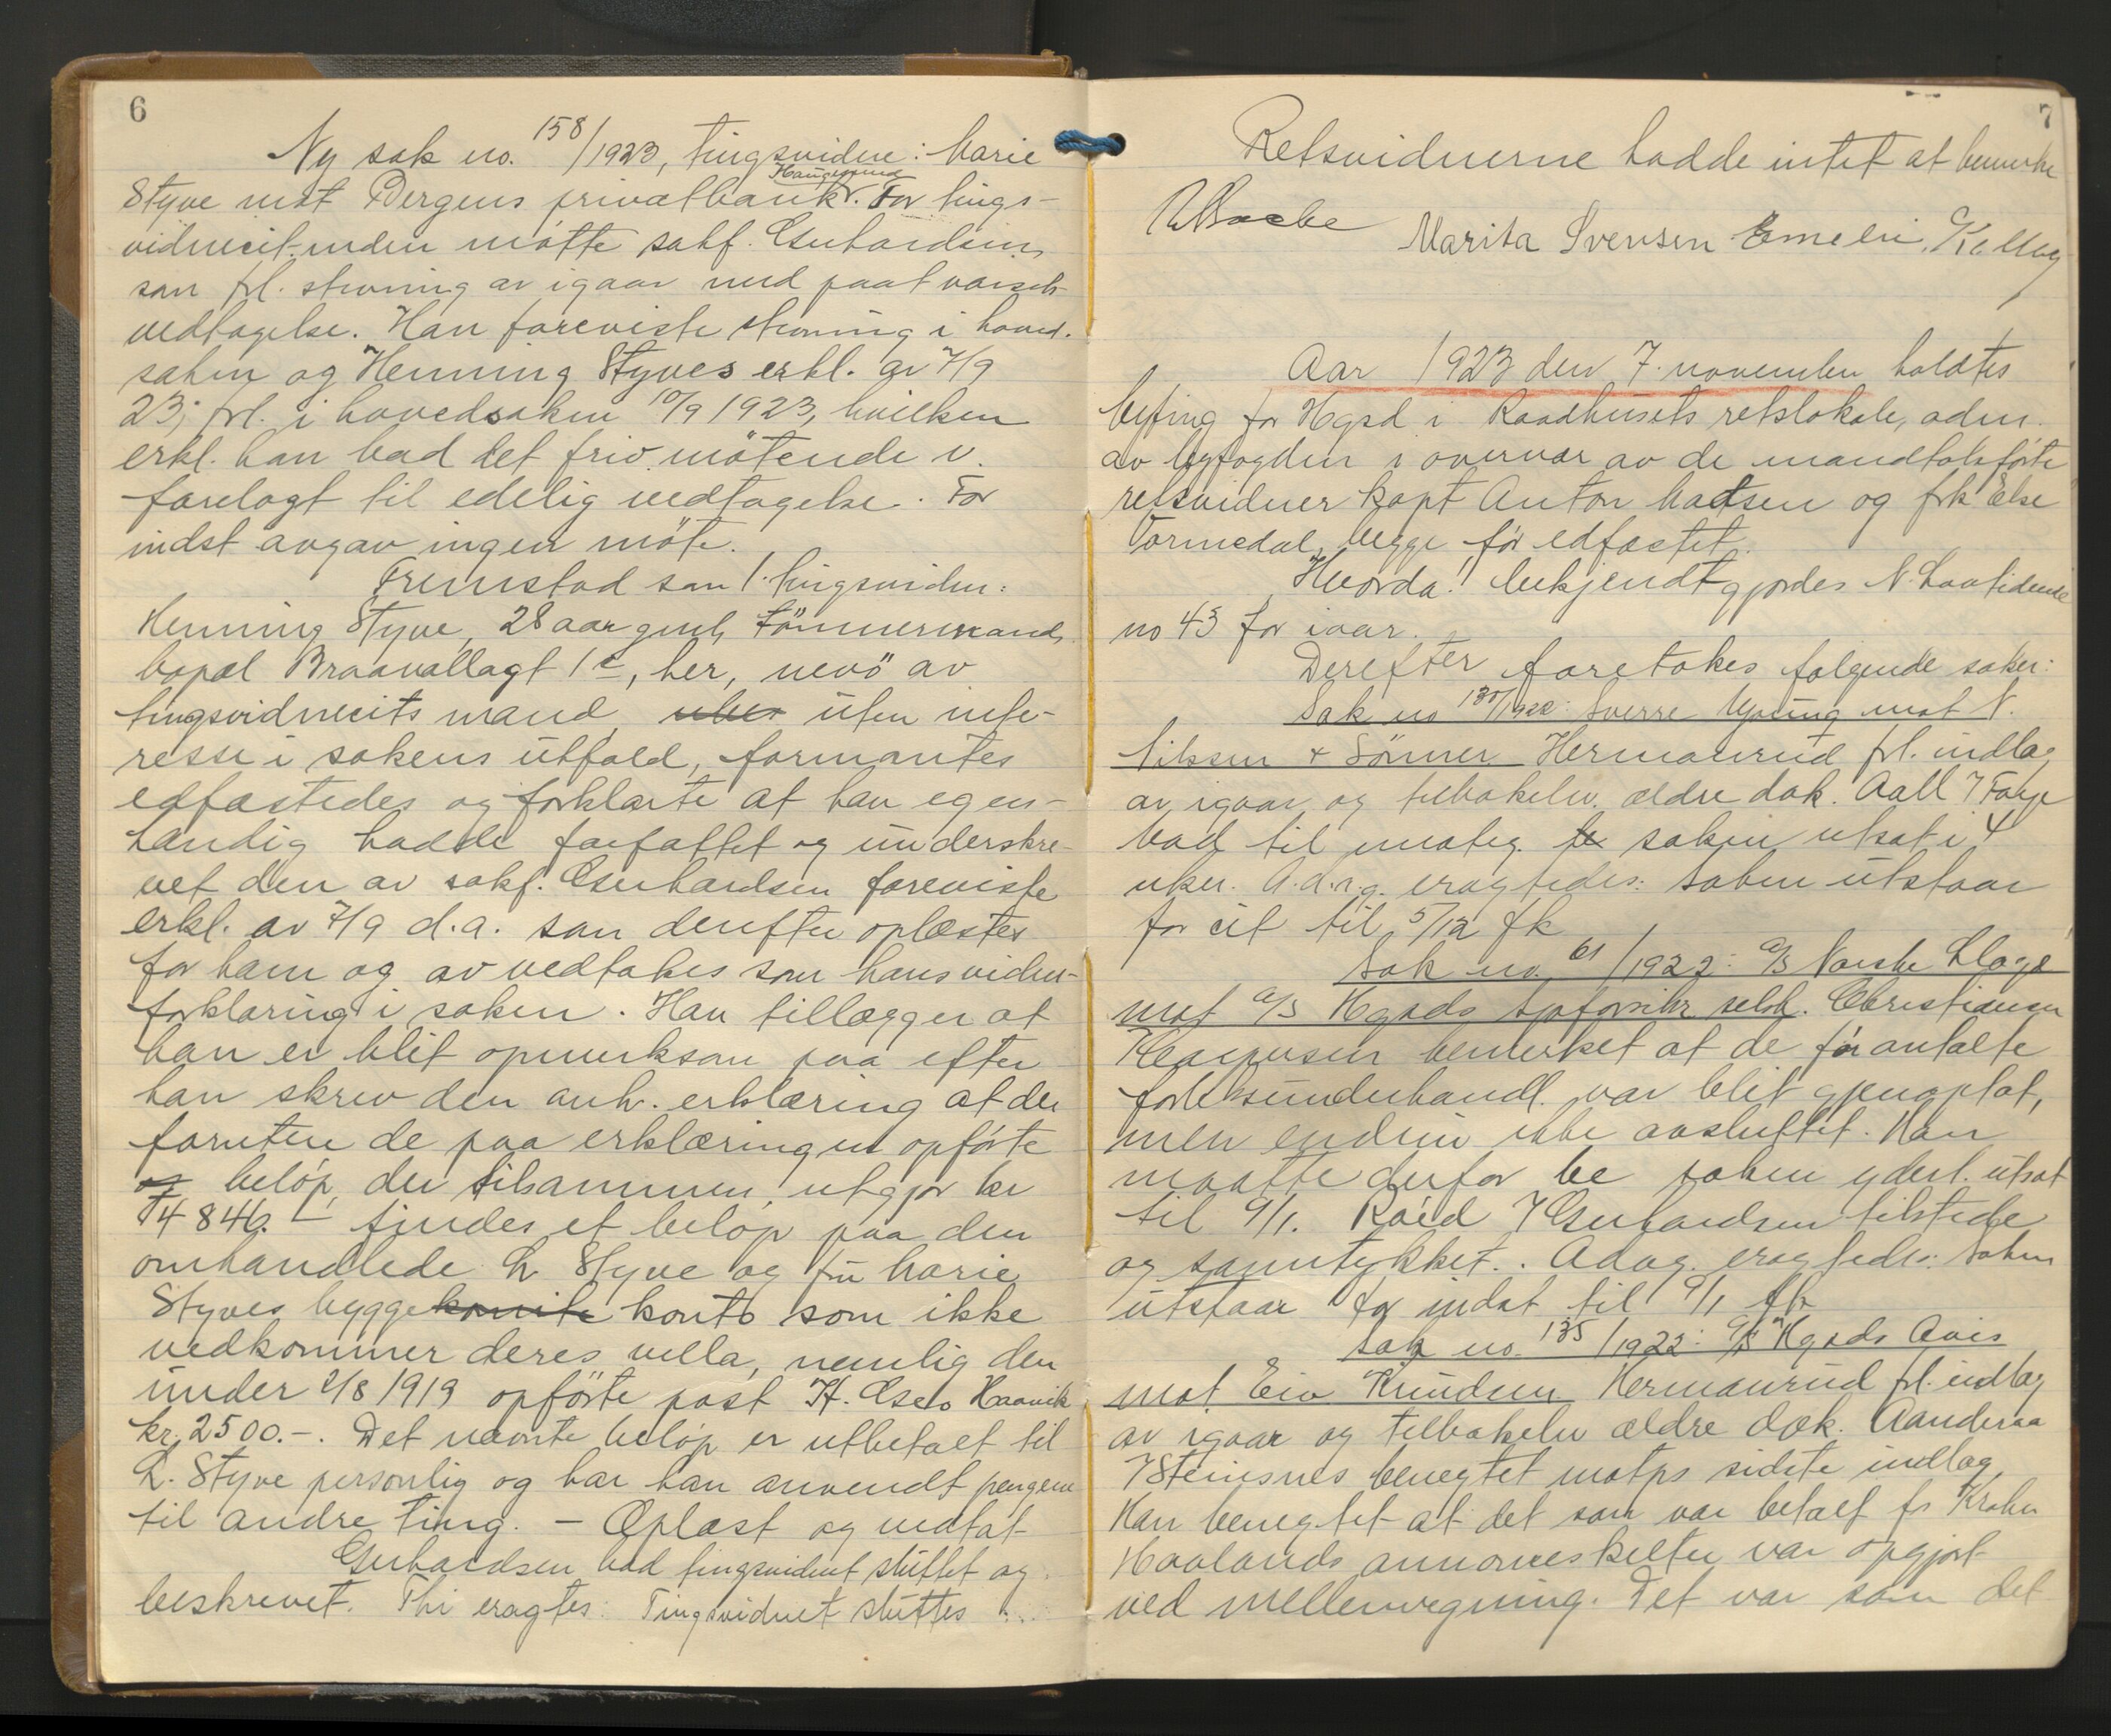 6
Ny sak no. 158/1923, tingsvidne: Marie
Haugesund
Styve mot Bergens privatbank. For tings-
vidnecit.inden mötte sakf. Gerhardsen,
som frl. stevning av igaar med paat varsels-
vedtagelse. Han foreviste stevning i hoved-
saken og Henning Styves erkl. av 7/9
23, frl. i hovedsaken 10/9 1923, hvilken
erkl. han bad det friv. mötende v.
forelagt til edelig vedtagelse. For
indst avgav ingen möte.
Fremstod som 1. tingsvidne:
Henning Styve, 28 aar gml, tömmermand,
bopæl Braavallagt 1c, her, nevö av
tingsvidnecits mand, uten inte-
resse i sakens utfald, formantes
edfæstedes og forklarte at han egen-
hændig hadde forfattet og underskre-
vet den av sakf. Gerhardsen foreviste
erkl. av 7/9 d.a. som derefter oplæstes
for ham og av vedtokes som hans vidne-
forklaring i saken. Han tillægger at
han er blit opmerksom paa efter
han skrev den anh. erklæring at der
foruten de paa erklæringen opförte
og belöp, der tilsammen utgjør kr
14846.- findes et belöp paa den
omhandlede L. Styve og fru Marie
Styves byggekonto konto som ikke
vedkommer deres villa, nemlig den
under 2/8 1919 opförte post H. Haavik
kr. 2500.-. Det nævnte belöp er utbetalt til
L. Styve personlig og har han anvendt pengene
til andre ting. - Oplæst og vedtat
Gerhardsen bad tingsvidnet sluttet og
beskrevet. Thi eragtes: Tingsvidnet sluttes
7
Retsvidnerne hadde intet at bemerke
Marita Svensen Emelie
Aar 1923 den 7. november holdtes
byting for Hgsd i Raadhusets retslokale, adm.
av byfogden i overvær av de mandtalsförte
retsvidner kapt Anton Madsen og frk Else
Vormedal, begge för edfæstet.
Hvorda! bekjendtgjordes N. Lovtidende
no 43 for iaar.
Derefter foretokes følgende saker:
Sak no 130/1922: Sverre mot N.
Nilssen & Sönner Hermanrud frl. indlæg
av igaar og tilbakelev. ældre dok. Aall
bad til moteg. saken utsat i 4
uker. A.d.a.g. eragtedes: Saken utstaar
for cit til 5/12 fk
Sak no. 61/1922: A/S Norske Lloyd
mot A/S Hgsds sjøforsikr selsk. Christiansen
bemerket at de för antalte
forliksunderhandl. var blit gjenoptat,
men endnu ikke avsluttet. Han
maatte derfor be saken yderl. utsat
til 9/1. Gerhardsen tilstede
og samtykket. Adag. eragtedes: Saken
utstaar for indst til 9/1 fk
Sak no. 135/1922: A/S Hgsds Avis
mot Eiv. Knudsen Hermanrud frl. indlæg
av igaar og tilbakelev ældre dok. Aanderaa
f Steinsnes benegtet motps sidste indlæg.
Han benegtet at det som var betalt fr Krohn
Hovlands annonceskilter var opgjort
ved mellemregning. Det var som det